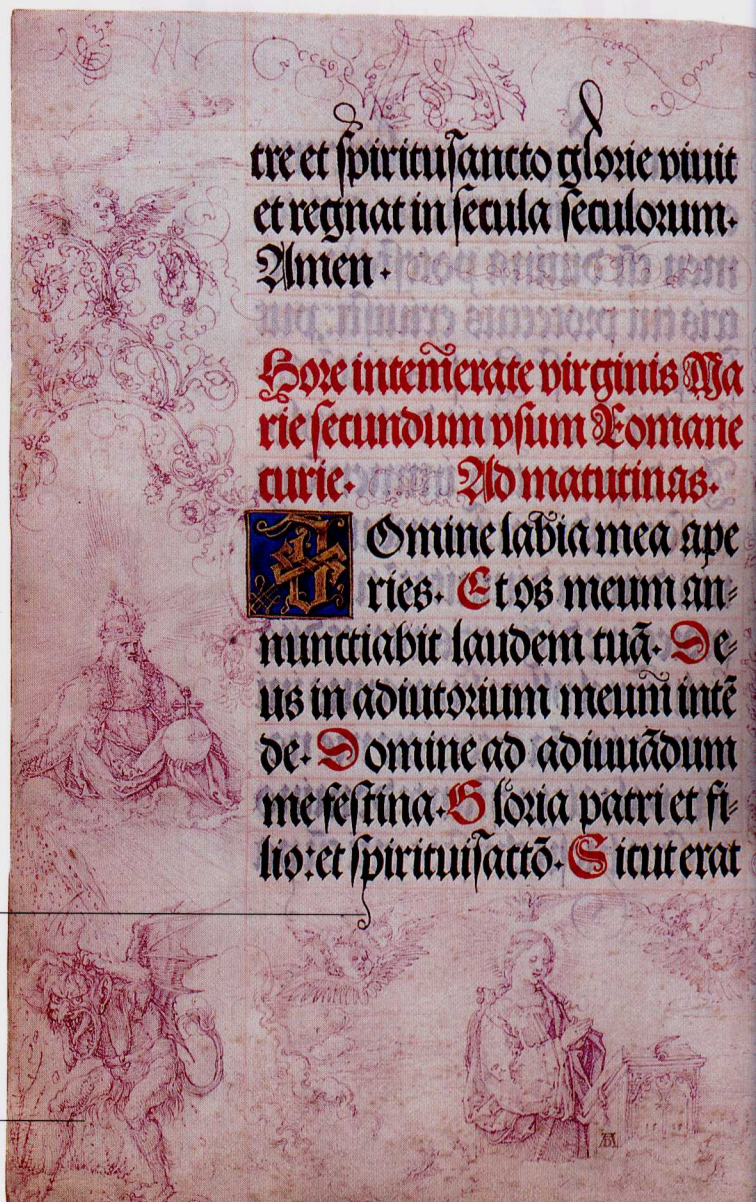 tre et spiritusancto glorie viuit
et regnat in secula seculorum.
Amen.
Hore intem̄erate virginis Ma
rie secundum vsum Romane
curie. Ad matutinas.
Domine labia mea ape
ries. Et os meum an-
nunctiabit laudem tuā. De-
us in adiutorium meum̄ intē
de. Domine ad adiuuādum
me festina. Gloria patri et fi-
lio: et spirituisāctō. Sicut erat
AD